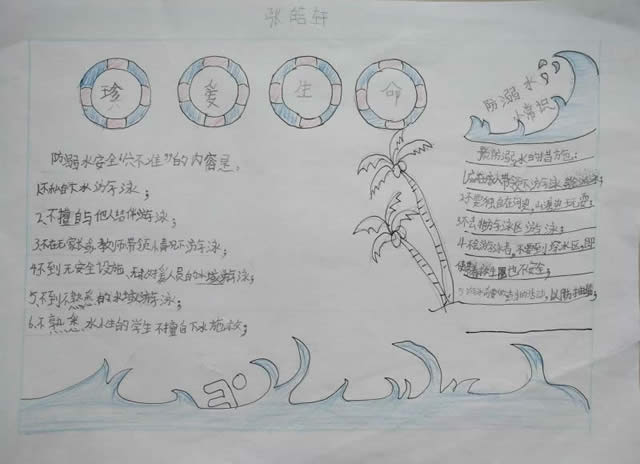 张皓轩
珍爱生命
防溺水小常识
防溺水安全"六不准"的内容是。
1.不私自下水游泳；
2.不擅自与他人结伴游泳；
3.不在无家长教师带领情况下游泳；
4.不到无安全设施、无救护人员的水域游泳；
5.不到不熟悉的水域游泳；
6.不熟悉水性的学生不擅自下水施救；
预防溺水的措施：
2.不要独自在河边，山塘边玩耍；
3.不去非游泳区游泳；
4.不会游泳者，不要到深水区，即
使带救生圈也不安全；